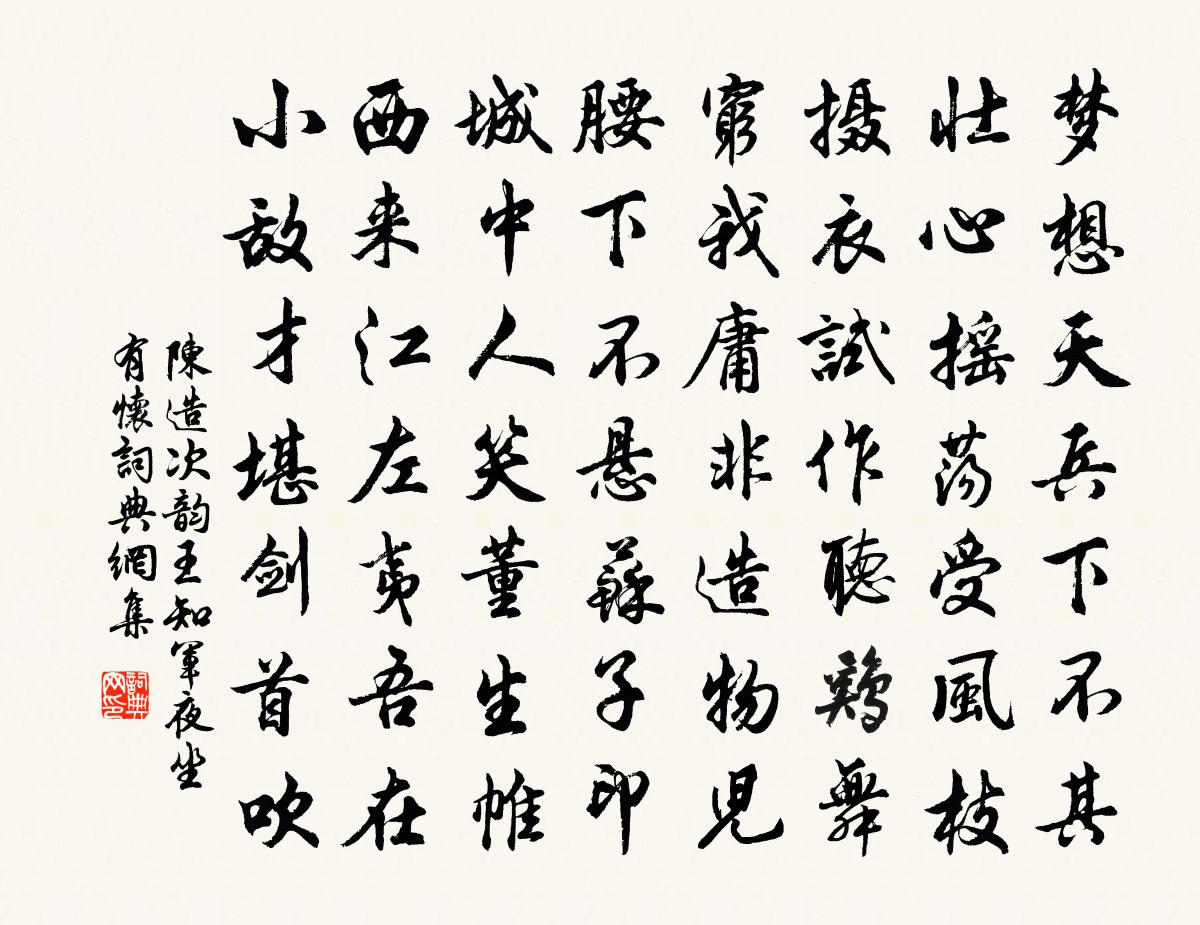 梦想天兵下不其
壮心摇荡受風枝
摄衣試作聽鶏舞
窮我庸非造物児
腰下不悬蘇子印
城中人笑董生帷
西来江左夷吾在
小敌才堪剑首吹
陳造次韵王知軍夜坐
有懷詞典網集
詞典网印